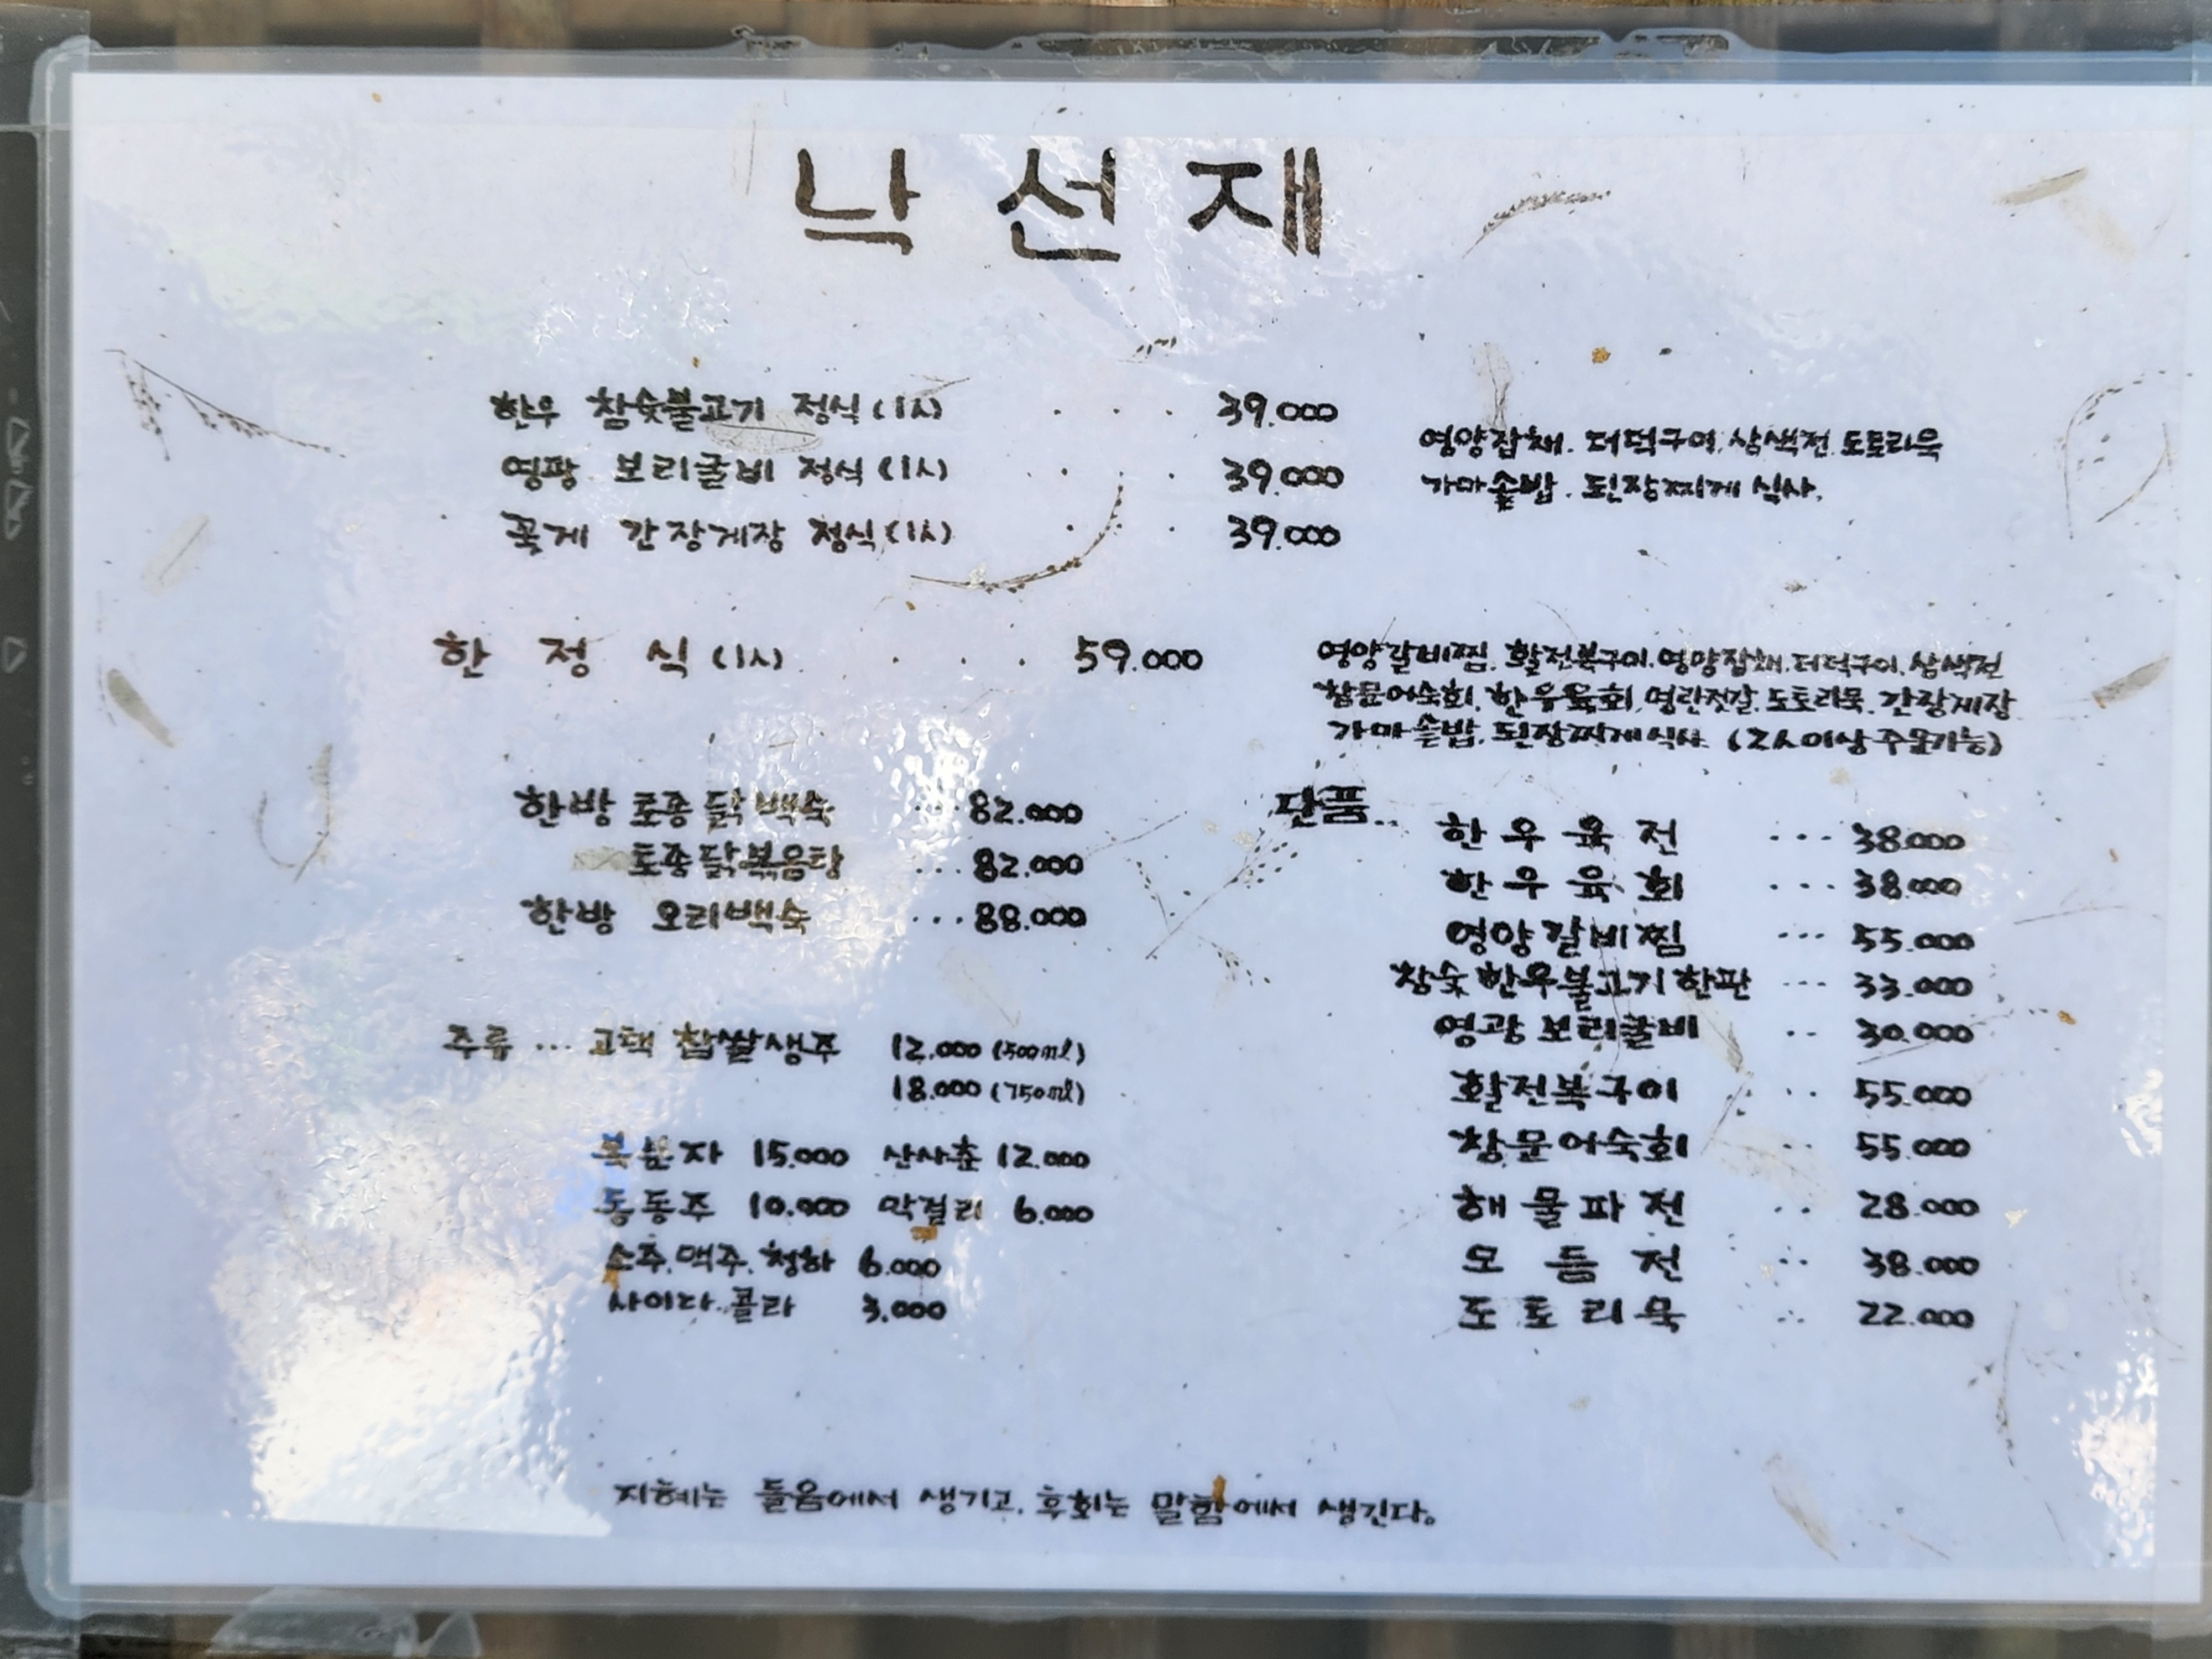 낙선재
한우 참숯불고기 정식 (1人) . . . 39.000
영광 보리굴비 정식 (1人) . . . 39.000
꽃게 간장게장 정식 (1人) . . 39.000
영양잡채. 더덕구이. 삼색전. 도토리묵
가마솥밥. 된장찌게 식사.
한 정 식 (1人) . . . 59.000
영양갈비찜. 활전복구이. 영양잡채. 더덕구이. 삼색전
참문어숙회. 한우육회. 명란젓갈. 도토리묵. 간장게장
가마솥밥. 된장찌게식사. (2人이상 주문가능)
한방 토종닭백숙 ... 82.000
토종닭볶음탕 ... 82.000
한방 오리백숙 ... 88.000
주류 ... 고택 찹쌀생주 12.000 (500ml)
18.000 (750ml)
복분자 15.000 산사춘 12.000
동동주 10.000 막걸리 6.000
소주. 맥주. 청하 6.000
사이다. 콜라 3.000
단품..
한우육전 ... 38.000
한우육회 ... 38.000
영양갈비찜 ... 55.000
참숯한우불고기한판 ... 33.000
영광보리굴비 .. 30.000
활전복구이 .. 55.000
참문어숙회 .. 55.000
해물파전 .. 28.000
모듬전 .. 38.000
도토리묵 .. 22.000
지혜는 들음에서 생기고, 후회는 말함에서 생긴다.